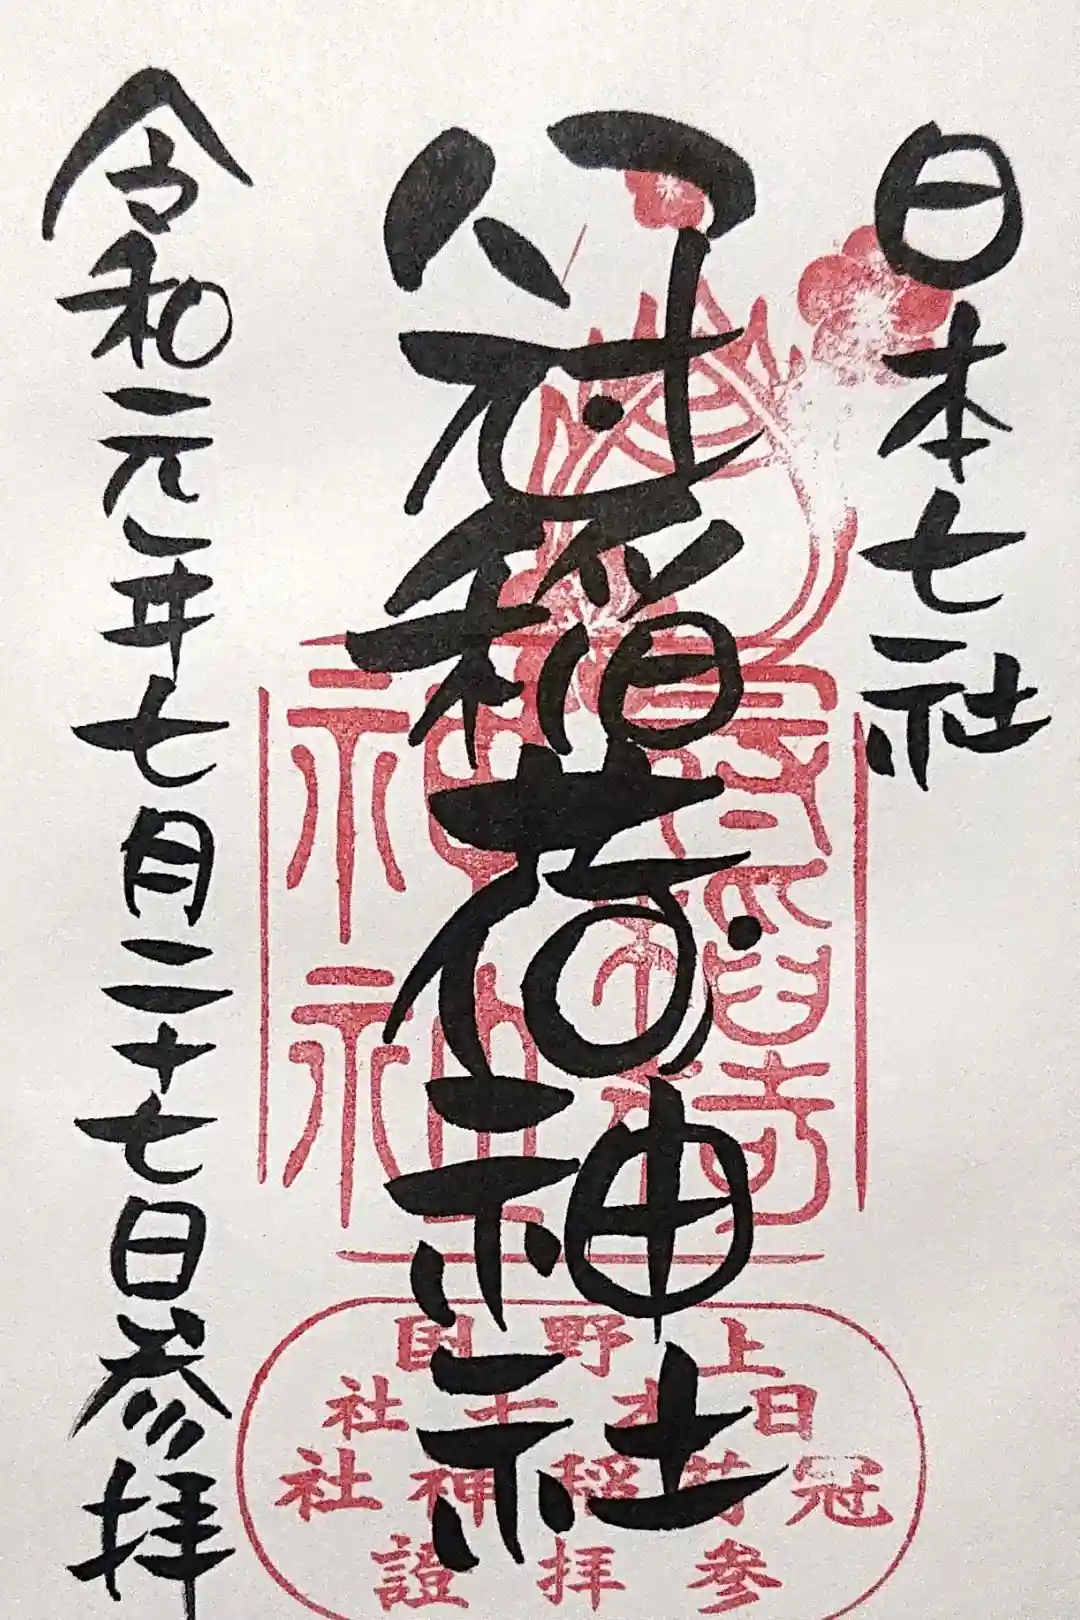 日本七社
冠稲荷神社
令和元年七月二十七日参拝
上野国
日本七社
冠稲荷神社
参拝證